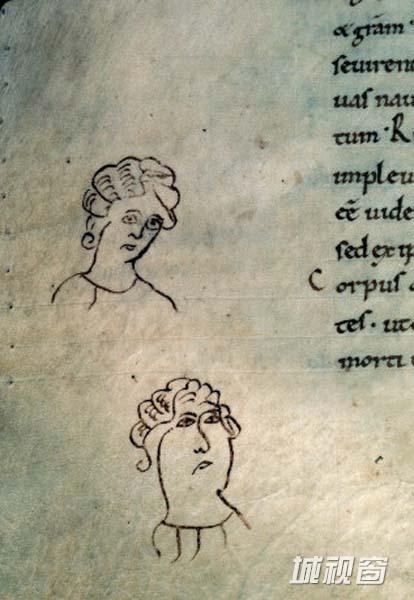 &grām ·
seuiren
uas nau
tum · R
impleu
eē uide
sed ex ip
Corpus
tes · ut
morti
城视窗